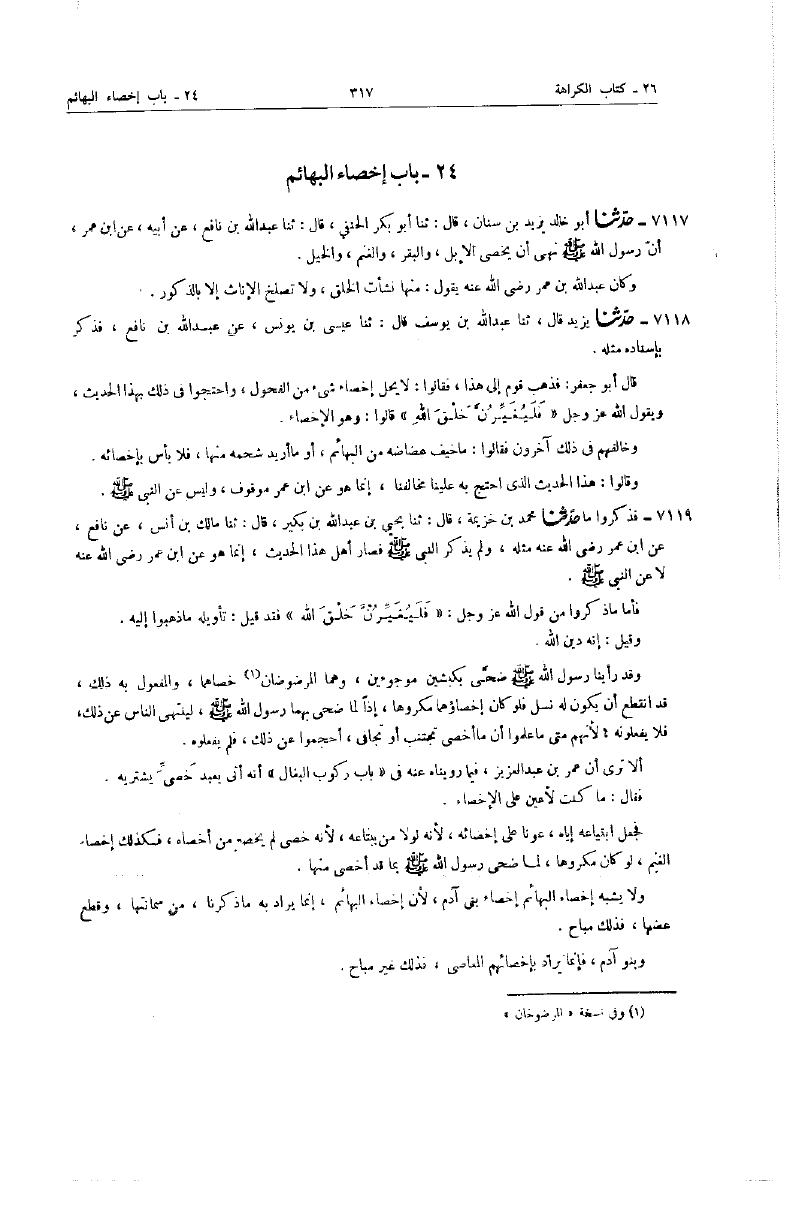 ٢٦ ـ كتاب الكراهة ٣١٧ ٢٤ ـ باب إخصاء البهائم
٢٤ ـ باب إخصاء البهائم
٧١١٧ ـ حدّثنا أبو خالد يزيد بن سنان ، قال : ثنا أبو بكر الحنفي ، قال : ثنا عبدالله بن نافع ، عن أبيه ، عن ابن عمر ،
أنّ رسول الله ﷺ نهى أن يخصى الإبل ، والبقر ، والغنم ، والخيل .
وكان عبدالله بن عمر رضى الله عنه يقول : منها نشأت الخلق ، ولا تصلخ الإناث إلا بالذكور .
٧١١٨ ـ حدّثنا يزيد قال ، ثنا عبدالله بن يوسف قال : ثنا عيسى بن يونس ، عن عبدالله بن نافع ، فذكر
بإسناده مثله .
قال أبو جعفر: فذهب قوم إلى هذا ، فقالوا : لا يحل إخصاء شىء من الفحول ، واحتجوا فى ذلك بهذا الحديث ،
ويقول الله عز وجل « فَلَيُغَيِّرُنَّ خَلْقَ اللهِ » قالوا : وهو الإخصاء .
وخالفهم فى ذلك آخرون فقالوا : ماخيف عضاضه من البهائم ، أو ماأريد شحمه منها ، فلا بأس بإخصائه .
وقالوا : هذا الحديث الذى احتج به علينا مخالفنا ، إنما هو عن ابن عمر موقوف ، وليس عن النبى ﷺ .
٧١١٩ ـ فذكروا ما حدّثنا محمد بن خزيمة ، قال : ثنا يحيى بن عبدالله بن بكير ، قال : ثنا مالك بن أنس ، عن نافع ،
عن ابن عمر رضى الله عنه مثله ، ولم يذكر النبى ﷺ فصار أهل هذا الحديث ، إنما هو عن ابن عمر رضى الله عنه
لا عن النبى ﷺ .
فأما ماذكروا من قول الله عز وجل : « فَلَيُغَيِّرُنَّ خَلْقَ الله » فقد قيل : تأويله ماذهبوا إليه .
وقيل : إنه دين الله .
وقد رأينا رسول الله ﷺ ضحّى بكبشين موجوءين ، وهما المرضوضان(١) خصاهما ، والمفعول به ذلك ،
قد انقطع أن يكون له نسل فلو كان إخصاؤهما مكروها ، إذاً لما ضحى بهما رسول الله ﷺ ، لينتهى الناس عن ذلك،
فلا يفعلونه ؛ لأنهم متى ماعلموا أن ماأخصى تجتنب أو تجافى ، أحجموا عن ذلك ، فلم يفعلوه .
ألا ترى أن عمر بن عبدالعزيز ، فيما رويناه عنه فى « باب ركوب البغال » أنه أتى بعبد خَصىٍّ يشتريه .
فقال : ما كنت لأعين على الإخصاء .
فجعل ابتياعه إياه ، عونا على إخصائه ، لأنه لولا من يبتاعه ، لأنه خصى لم يخصه من أخصاه ، فكذلك إخصاء
الغنم ، لو كان مكروها ، لما ضحى رسول الله ﷺ بما قد أخصى منها .
ولا يشبه إخصاء البهائم إخصاء بنى آدم ، لأن إخصاء البهائم ، إنما يراد به ماذكرنا ، من سمانتها ، وقطع
عضها ، فذلك مباح .
وبنو آدم ، فإنما يراد بإخصائهم المعاصى ، فذلك غير مباح .
(١) وفى نسخة « المرضوخان »